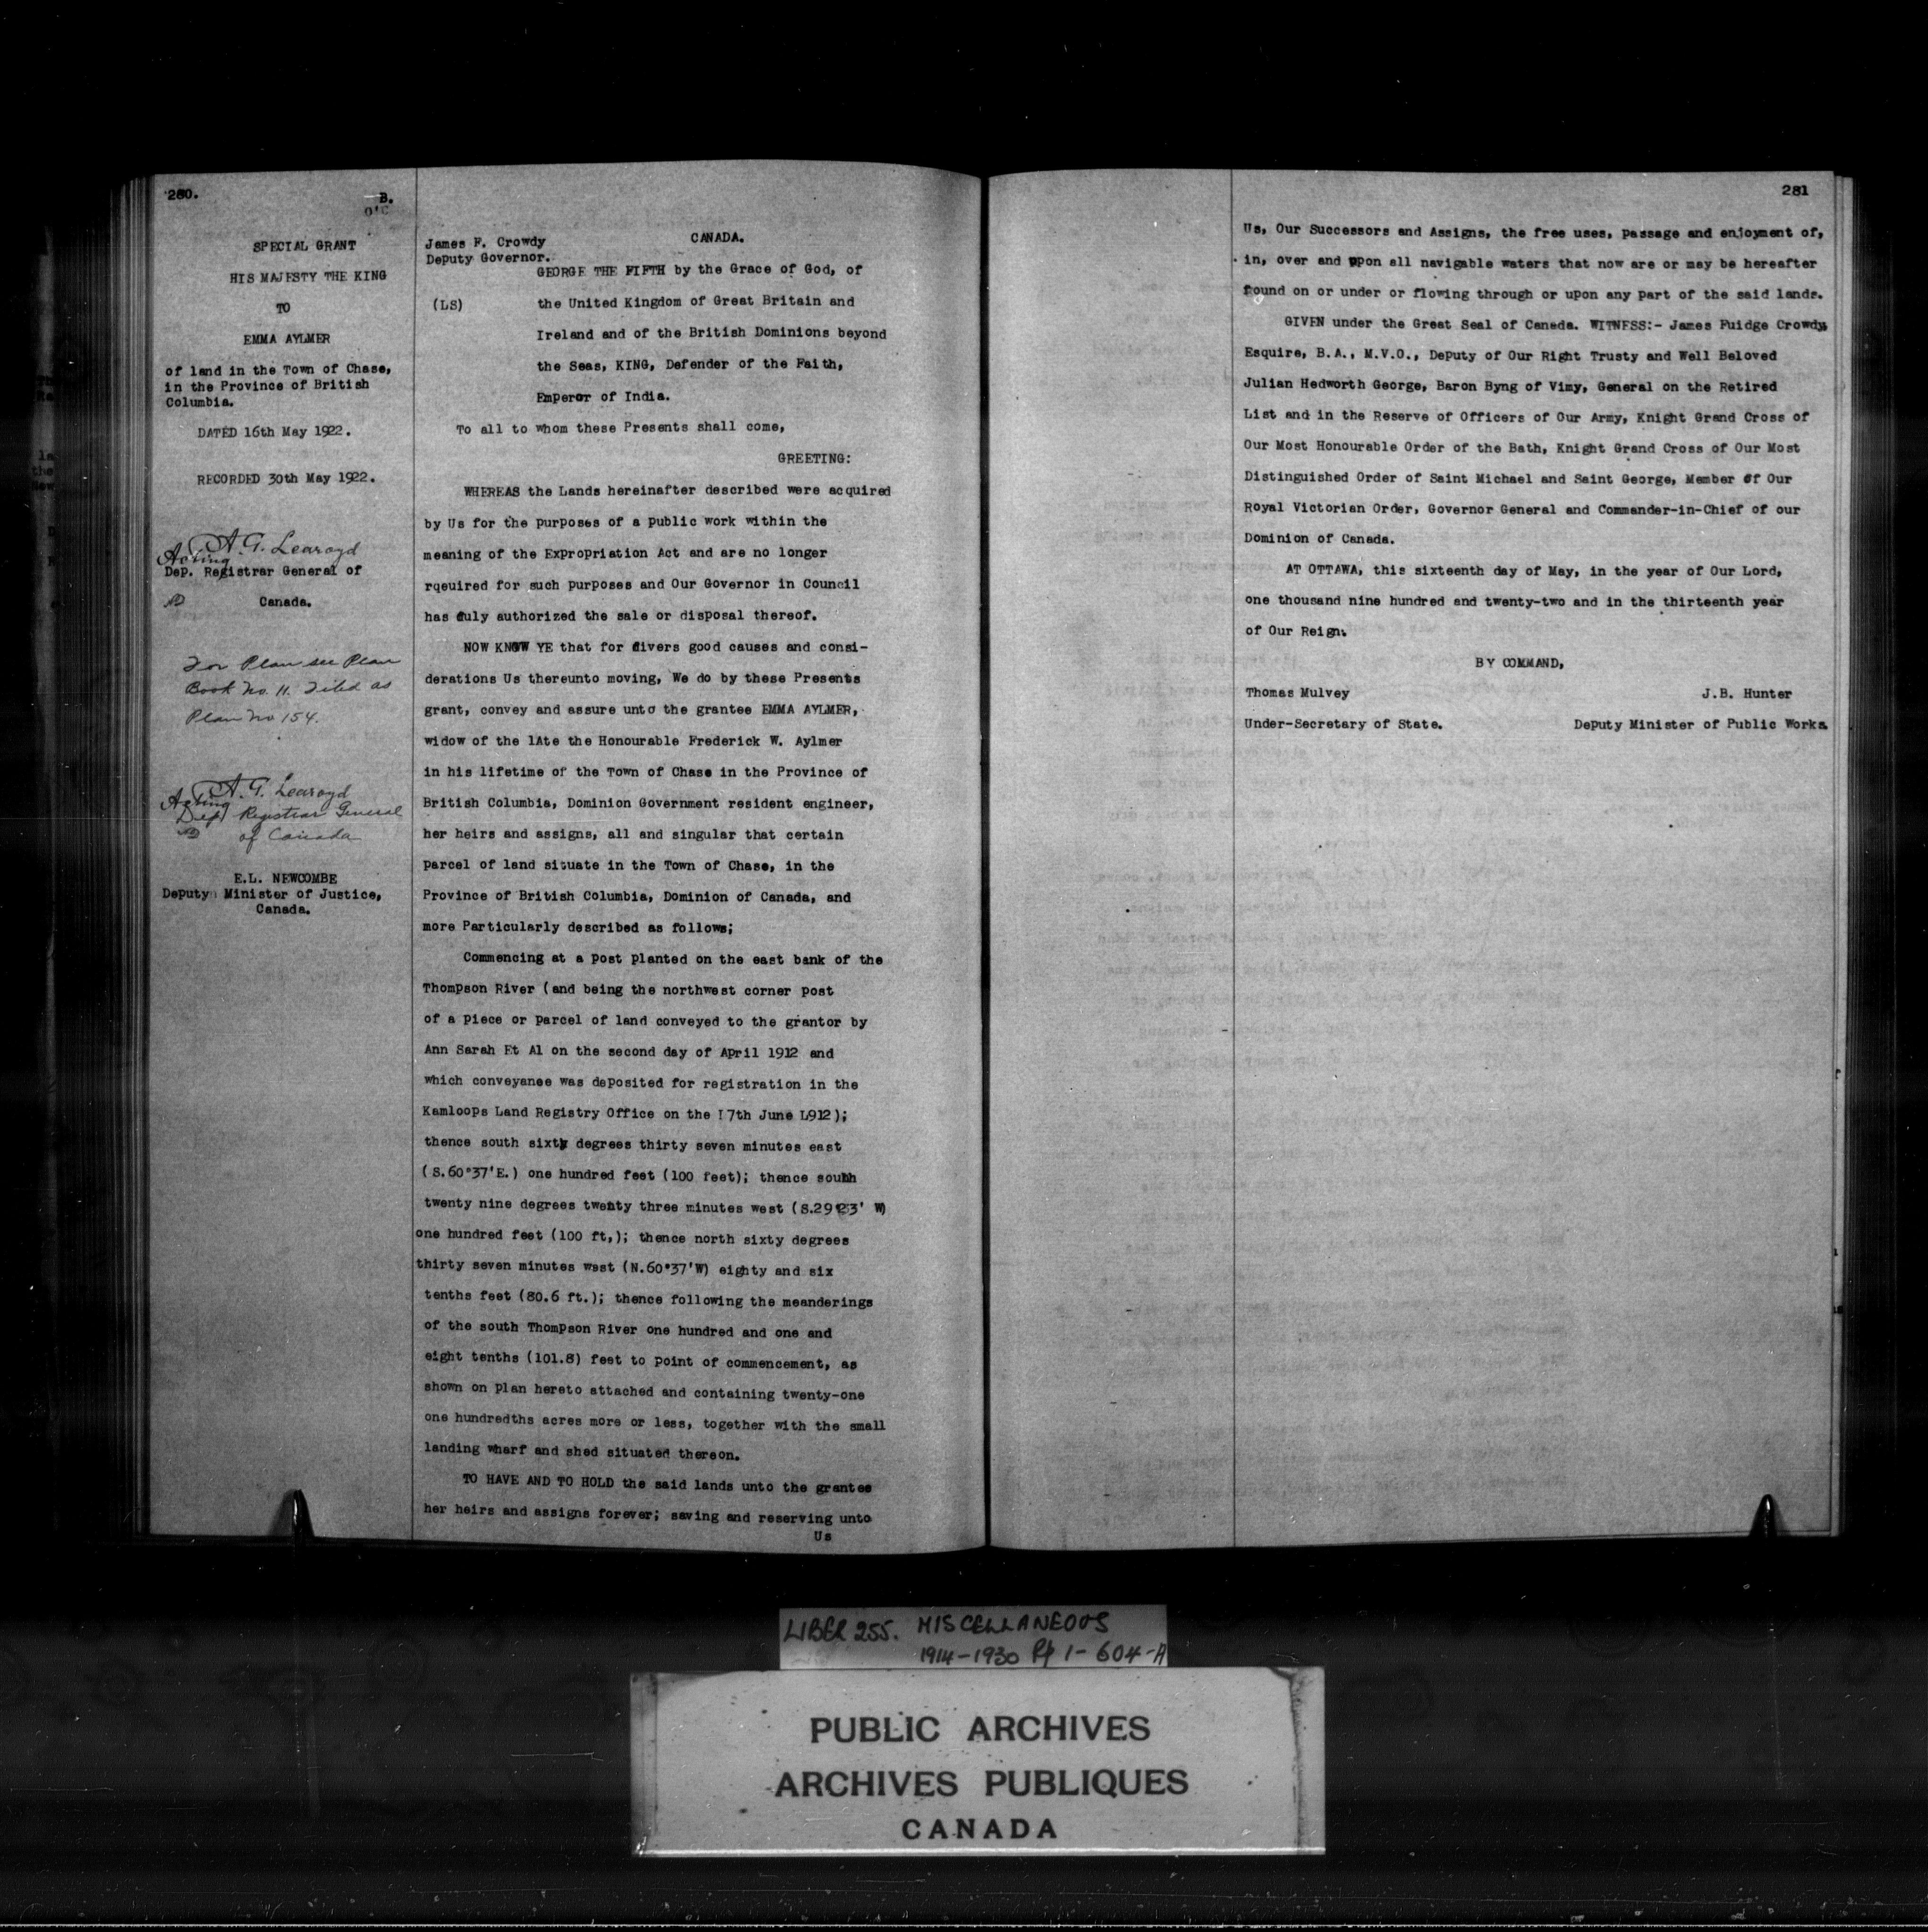 280.
B.
O'C
SPECIAL GRANT
HIS MAJESTY THE KING
TO
EMMA AYLMER
of land in the Town of Chase,
in the Province of British
Columbia.
DATED 16th May 1922.
RECORDED 30th May 1922.
A. G. Learoyd
Acting
Dep. Registrar General of
Canada.
For Plan see Plan
Book No. 11. Filed as
Plan No 154.
A. G. Learoyd
Acting
Dep Registrar General
of Canada
E.L. NEWCOMBE
Deputy Minister of Justice,
Canada.
James F. Crowdy
Deputy Governor.
(LS)
CANADA.
GEORGE THE FIFTH by the Grace of God, of
the United Kingdom of Great Britain and
Ireland and of the British Dominions beyond
the Seas, KING, Defender of the Faith,
Emperor of India.
To all to whom these Presents shall come,
GREETING:
WHEREAS the Lands hereinafter described were acquired
by Us for the purposes of a public work within the
meaning of the Expropriation Act and are no longer
rqeuired for such purposes and Our Governor in Council
has duly authorized the sale or disposal thereof.
NOW KNOW YE that for divers good causes and consi-
derations Us thereunto moving, We do by these Presents
grant, convey and assure unto the grantee EMMA AYLMER,
widow of the lAte the Honourable Frederick W. Aylmer
in his lifetime of the Town of Chase in the Province of
British Columbia, Dominion Government resident engineer,
her heirs and assigns, all and singular that certain
parcel of land situate in the Town of Chase, in the
Province of British Columbia, Dominion of Canada, and
more Particularly described as follows;
Commencing at a post planted on the east bank of the
Thompson River (and being the northwest corner post
of a piece or parcel of land conveyed to the grantor by
Ann Sarah Et Al on the second day of April 1912 and
which conveyanee was deposited for registration in the
Kamloops Land Registry Office on the I7th June L912);
thence south sixty degrees thirty seven minutes east
(S.60°37'E.) one hundred feet (100 feet); thence south
twenty nine degrees twenty three minutes west (S.29°23' W)
one hundred feet (100 ft,); thence north sixty degrees
thirty seven minutes west (N.60°37'W) eighty and six
tenths feet (80.6 ft.); thence following the meanderings
of the south Thompson River one hundred and one and
eight tenths (101.8) feet to point of commencement, as
shown on plan hereto attached and containing twenty-one
one hundredths acres more or less, together with the small
landing wharf and shed situated thereon.
TO HAVE AND TO HOLD the said lands unto the grantee
her heirs and assigns forever; saving and reserving unto
Us
281
Us, Our Successors and Assigns, the free uses, passage and enjoyment of,
in, over and upon all navigable waters that now are or may be hereafter
found on or under or flowing through or upon any part of the said lands.
GIVEN under the Great Seal of Canada. WITNESS:- James Fuidge Crowdy,
Esquire, B.A., M.V.O., Deputy of Our Right Trusty and Well Beloved
Julian Hedworth George, Baron Byng of Vimy, General on the Retired
List and in the Reserve of Officers of Our Army, Knight Grand Cross of
Our Most Honourable Order of the Bath, Knight Grand Cross of Our Most
Distinguished Order of Saint Michael and Saint George, Member of Our
Royal Victorian Order, Governor General and Commander-in-Chief of our
Dominion of Canada.
AT OTTAWA, this sixteenth day of May, in the year of Our Lord,
one thousand nine hundred and twenty-two and in the thirteenth year
of Our Reign.
BY COMMAND,
Thomas Mulvey
J.B. Hunter
Under-Secretary of State.
Deputy Minister of Public Works
LIBER 255. MISCELLANEOUS
1914-1930 Pp 1-604-A
PUBLIC ARCHIVES
ARCHIVES PUBLIQUES
CANADA